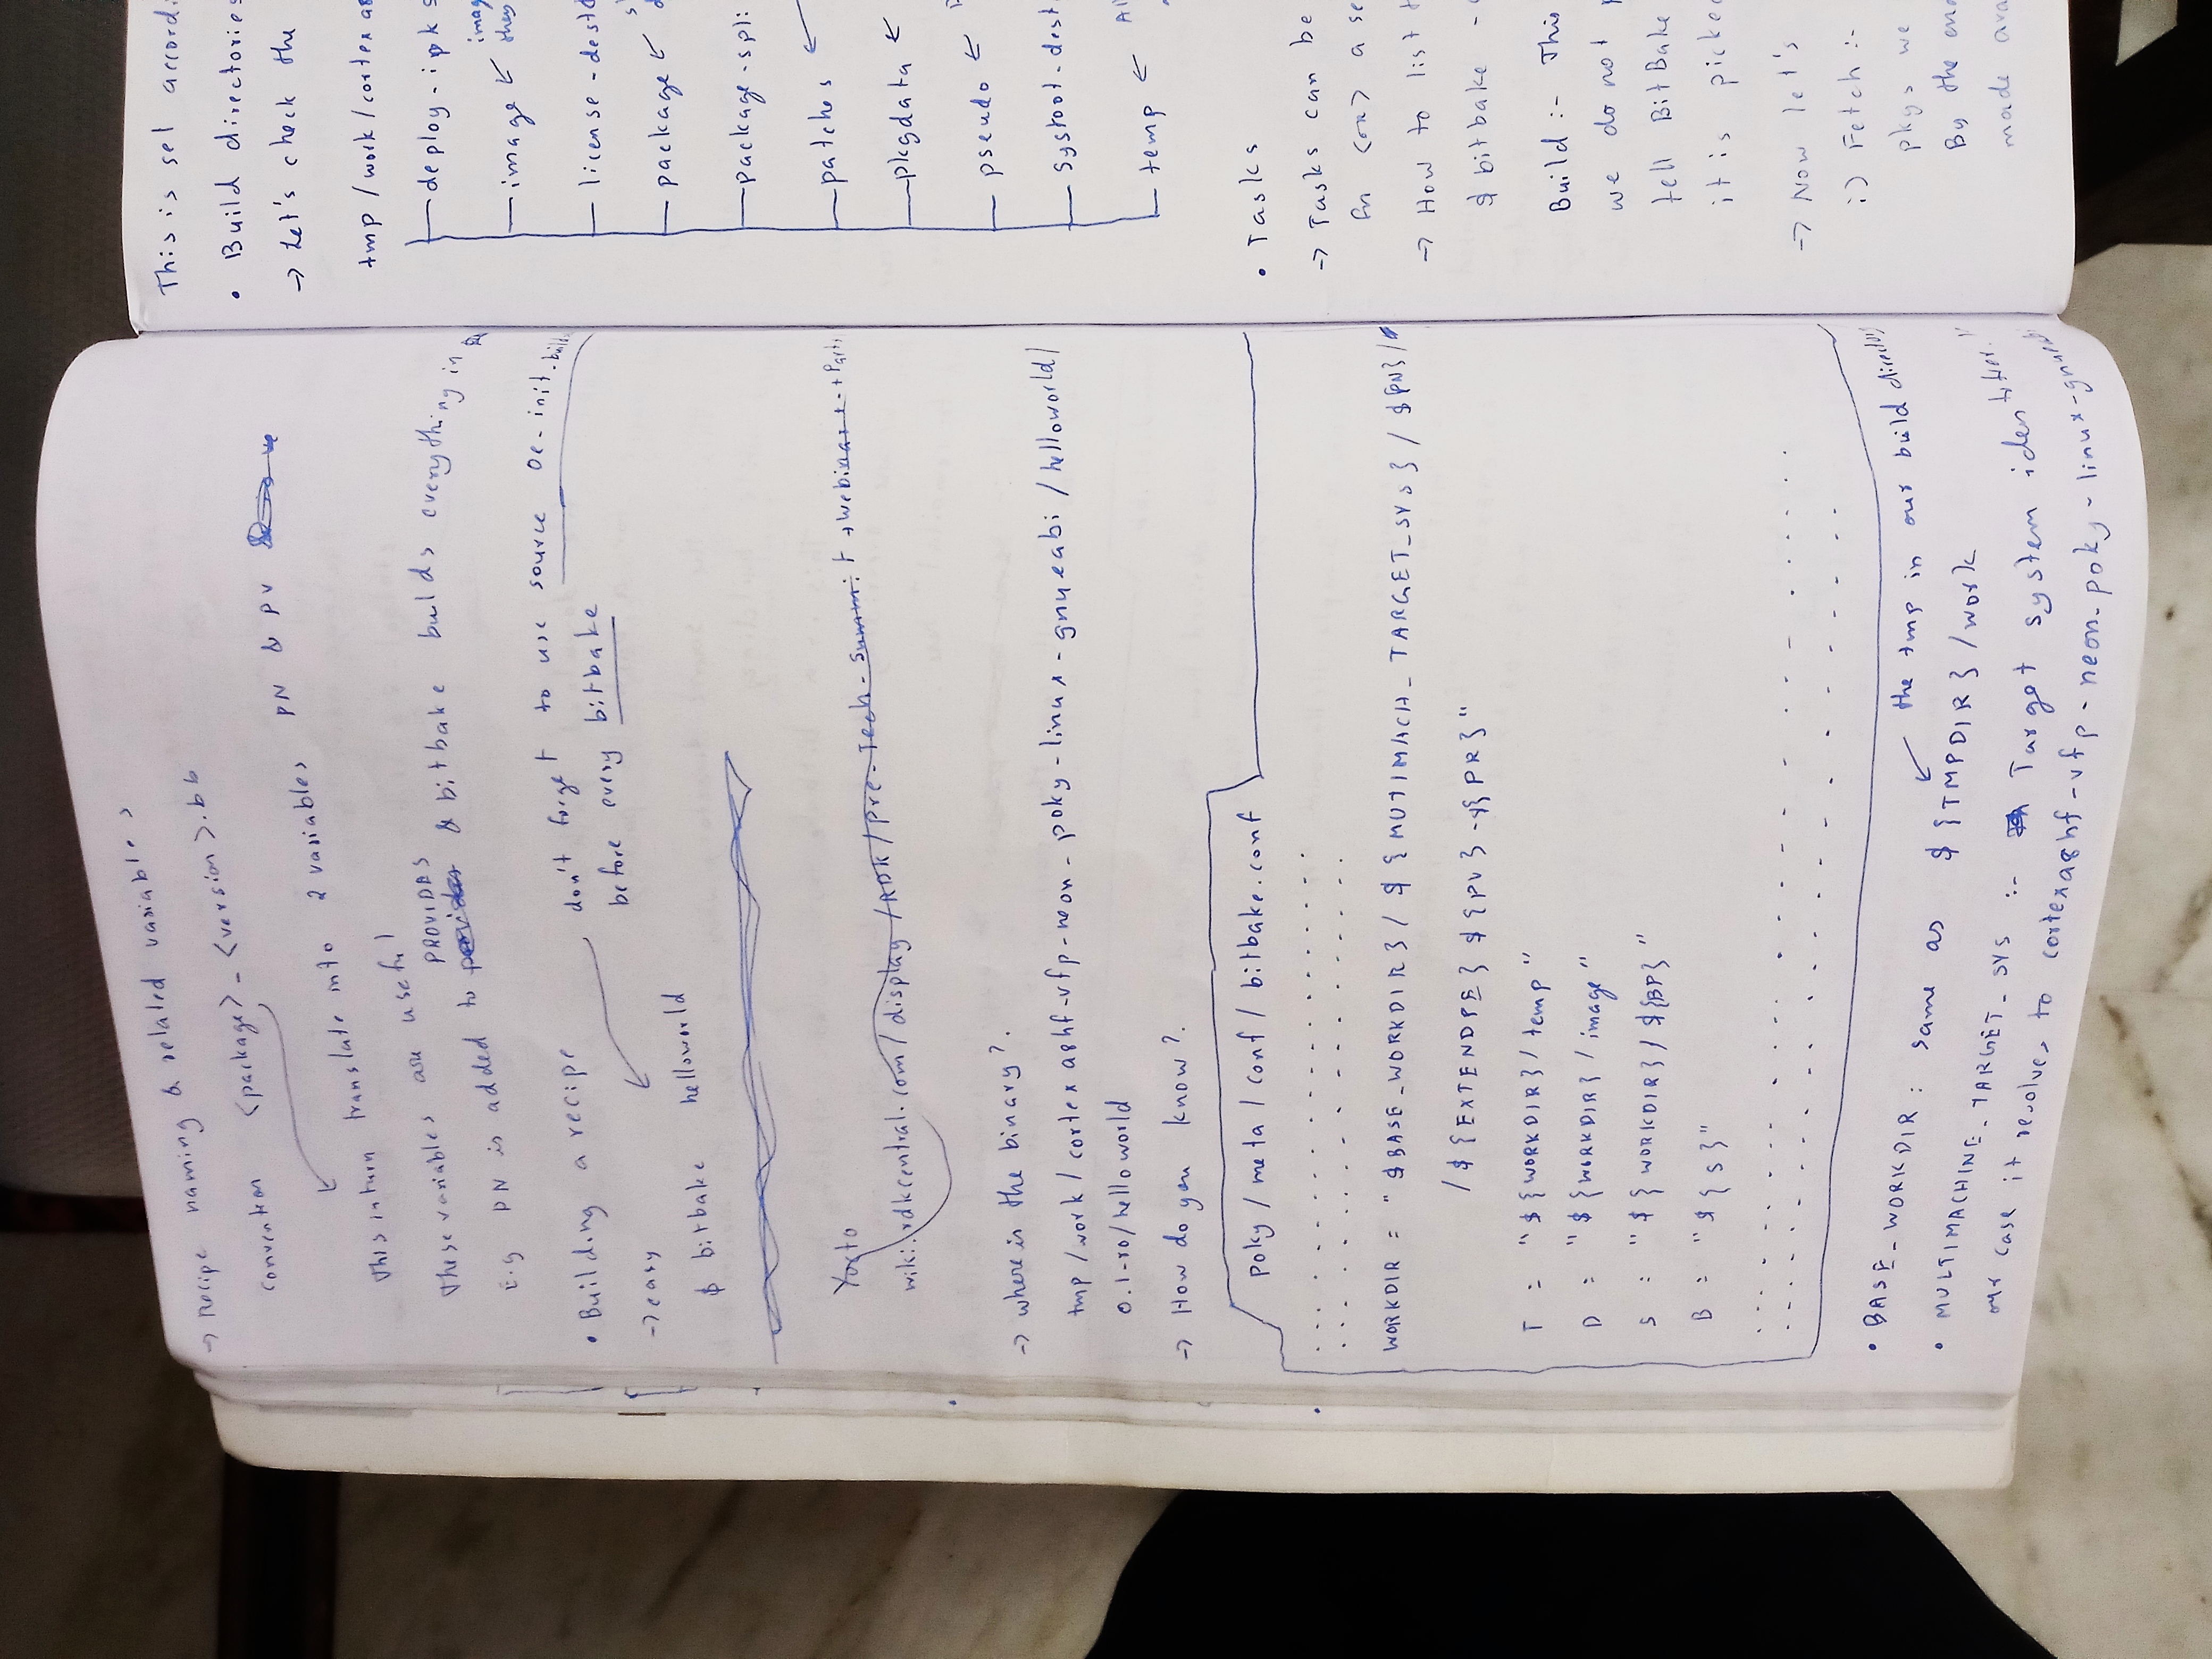 → recipe naming & related variables
convention <package> - <version>.bb
This inturn translate into 2 variables PN & PV
These variables are useful
E.g PN is added to PROVIDES & bitbake builds everything in
• Building a recipe
don't forget to use source oe-init-build
before every bitbake
→ easy
$ bitbake helloworld
Yocto
wiki.rdkcentral.com/display/RDK/pre-Tech-Summit+webinar+-+Parts
→ where is the binary?
tmp/work/cortexa8hf-vfp-neon-poky-linux-gnueabi/helloworld/
0.1-r0/helloworld
→ How do you know?
poky/meta/conf/bitbake.conf
WORKDIR = "$BASE_WORKDIR}/${MUTIMACH_TARGET_SYS}/${PN}/
/${EXTENDPE}${PV}-${PR}"
T = "${WORKDIR}/temp"
D = "${WORKDIR}/image"
S = "${WORKDIR}/${BP}"
B = "${S}"
• BASE_WORKDIR : same as ${TMPDIR}/work
the tmp in our build directory
• MULTIMACHINE_TARGET_SYS :- Target system identifier.
our case it resolves to cortexa8hf-vfp-neon-poky-linux-gnueabi
This is set accordi
• Build directories
→ Let's check the
tmp/work/cortexa8
deploy-ipks
image ←
imag
license-destd
package ←
package-spli
patches ←
pkgdata ←
pseudo ←
sysroot-dest
temp ← Al
• Tasks
→ Tasks can be
fn (or) a se
→ How to list t
$ bitbake -c
Build :- This
we do not
tell BitBake
it is picked
→ Now let's
i) Fetch :-
pkgs we
By the end
made ava